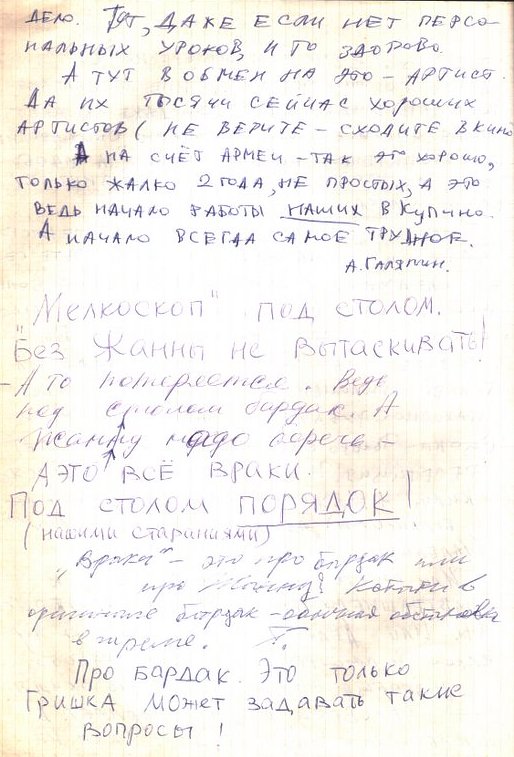 дело. Тот, даже если нет персо-
нальных уроков, и то здорово.
А тут в обмен на это – артист.
Да их тысячи сейчас хороших
артистов (не верите – сходите в кино
А на счёт армеи – так это хорошо,
только жалко 2 года, не простых, а это
ведь начало работы наших в Купчино.
А начало всегда самое трудное.
А. Галяпин.
"Мелкоскоп" под столом.
"Без Жанны не вытаскивать!
– А то потеряется. Ведь
под столом бардак. А
Жанну надо
А это всё враки.
Под столом порядок!
(нашими стараниями)
"Враки" – это про бардак или
про Жанну? Кстати в
оригинале бардак –
в гареме. Г.
Про бардак. Это только
Гришка может задавать такие
вопросы!